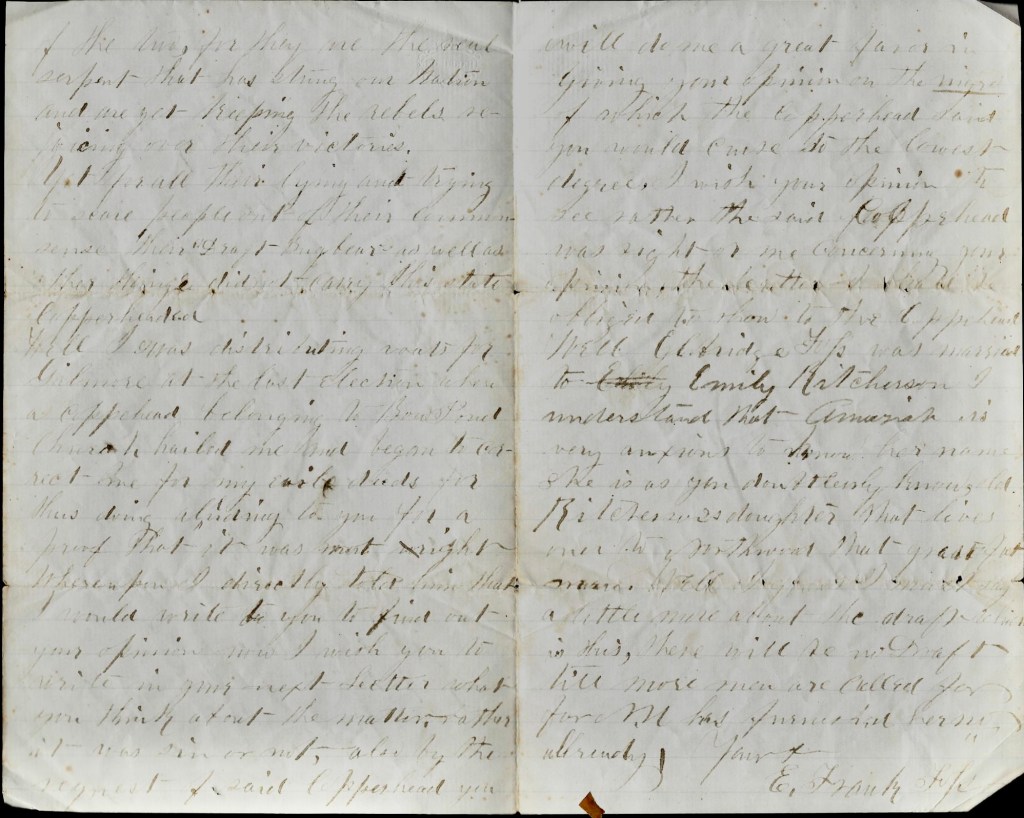 of the two, for they are the real
serpent that has stung our Nation
and are yet keeping the rebels re-
joicing over their victories.
Yet for all their lying and trying
to scare people out of their common
sense their "Draft bugbear" as well as
other things didnt carry this state
Copperheaded
Well I was distributing voats for
Gilmore at the last Election where
a Coppehead belonging to Pond
Church hailed me and began to cor-
rect me for my evil deeds for
thus doing aluding to you for a
proof that it was most right
Whereupon I directly told him that
I would write to you to find out
your opinion now I wish you to
write in your next letter what
you think about the matter, rather
it was sin or not, also by the
request of said Copperhead you
will do me a great favor in
giving your opinion on the
of which the Copperhead said
you would curse to the lowest
degree. I wish your opinion to
see rather the said Copperhead
was right or me concerning your
opinion, the letter I shall be
obliged to show to the Copphead
Well Elbridge was married
to Emily Emily Kitcherson I
understand that Amaziah is
very anxious to know her name
She is as you doubtlessly know old
Kitchersons daughter that lives
over to Northwood that great fat
man. Well I must say
a little more about the draft which
is this, there will be no Draft
till more men are called for
for NH has furnished hern
allready) Your
E. Frank